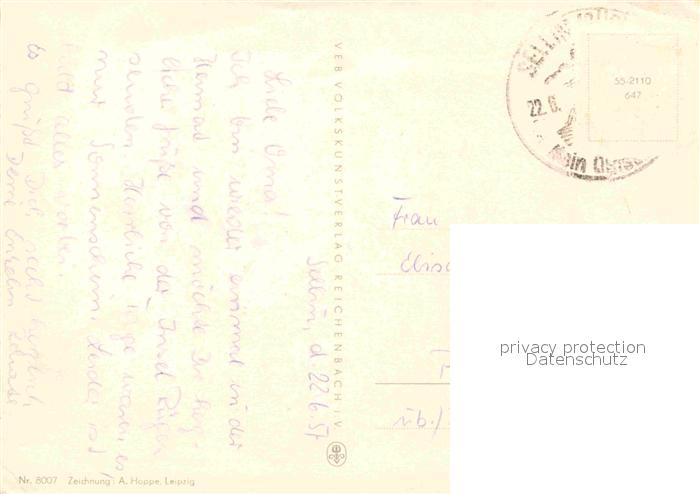 Sellin, d. 22.6.57
Liebe Oma!
Ich bin wieder einmal in der
Heimat und möchte Dir herz-
liche Grüße von der Insel Rügen
senden. Herrliche Tage waren es,
nur Sonnenschein. Leider ist
bald alles vorbei.
Es grüßt Dich recht herzlich
Deine Enkelin
VEB VOLKSKUNSTVERLAG REICHENBACH I. V.
SELLIN
22.6.
55-2110
647
Frau
Elis
üb./
privacy protection
Datenschutz
Nr. 8007 Zeichnung: A. Hoppe, Leipzig